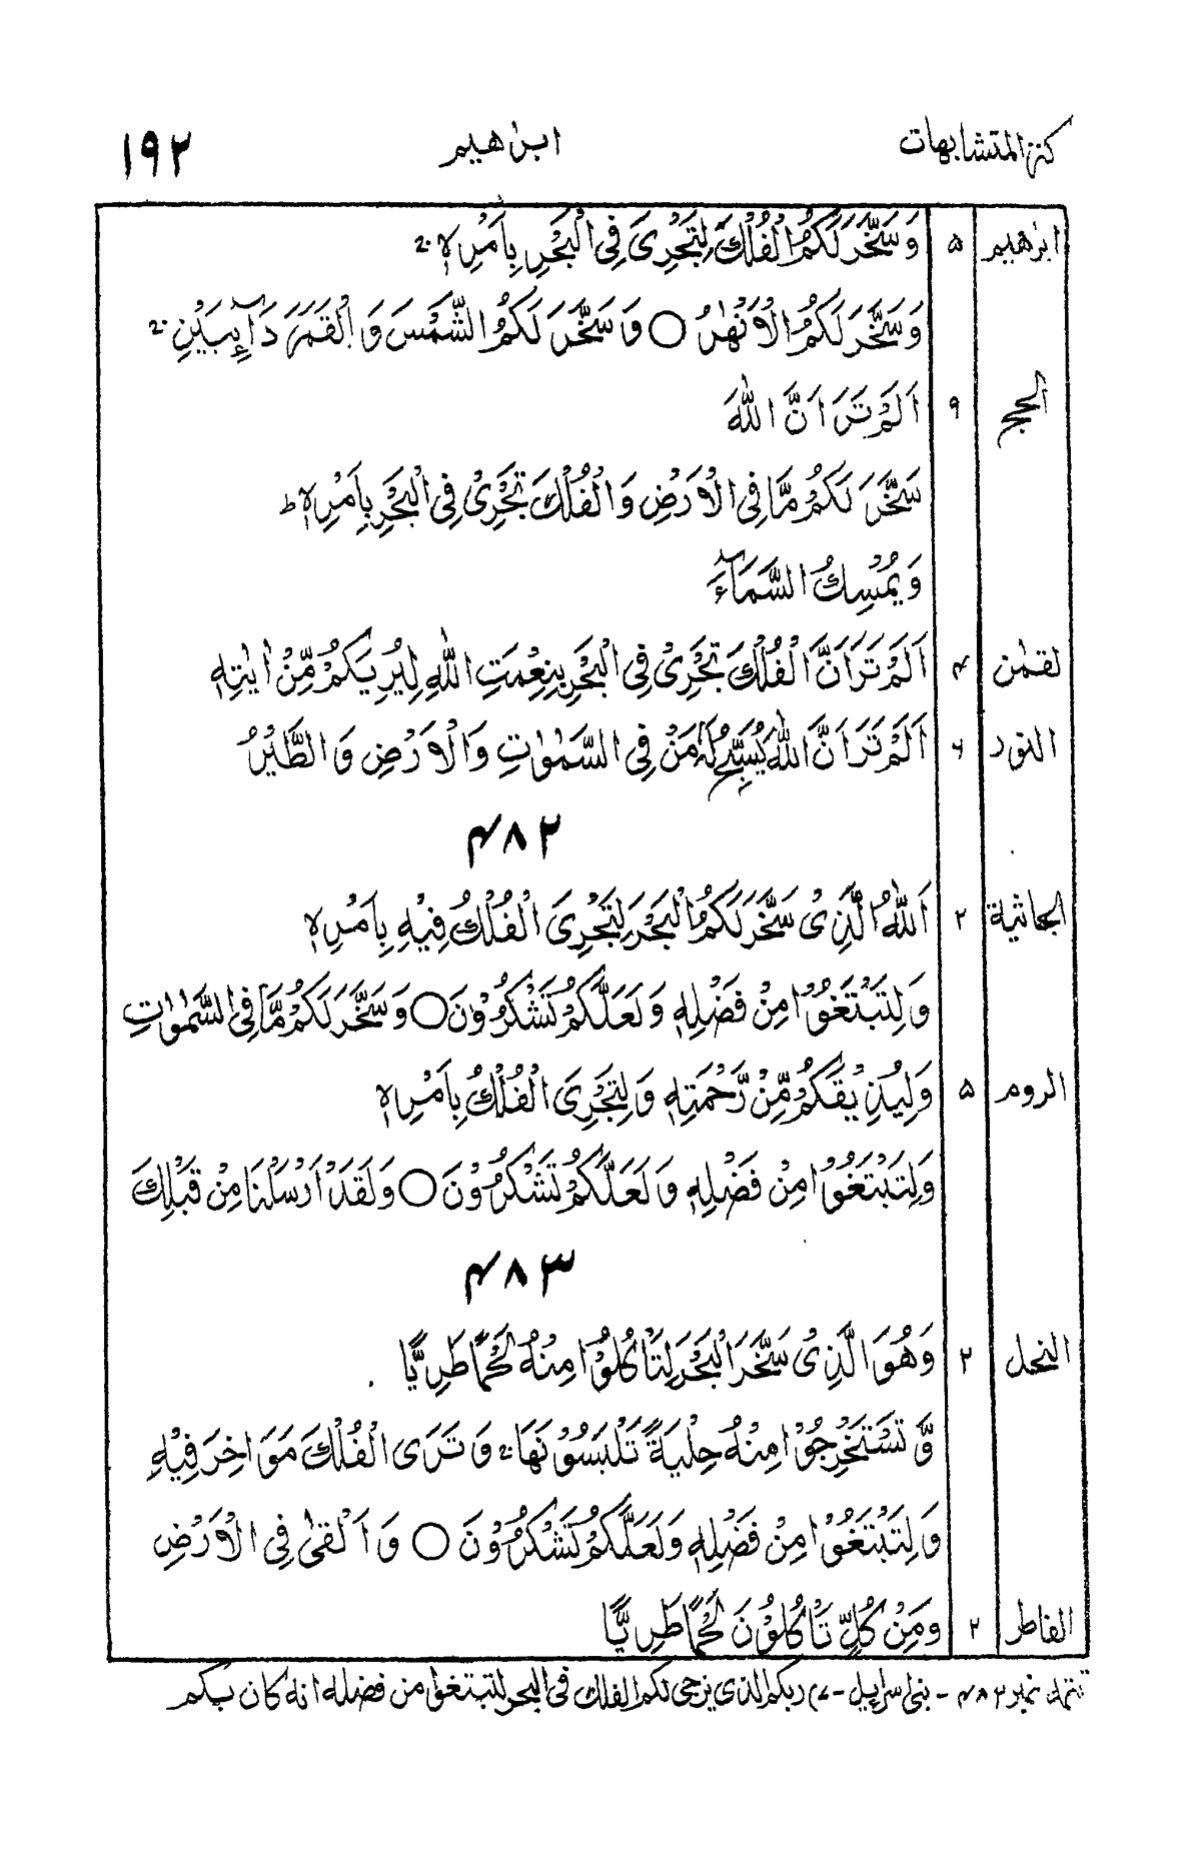 كنز المتشابهات ابرٰهيم ١٩٢
ابرٰهيم ۵ وَسَخَّرَ لَكُمُ الْفُلْكَ لِتَجْرِىَ فِى الْبَحْرِ بِاَمْرِهٖ ۚ
وَسَخَّرَ لَكُمُ الْاَنْهٰرَ ○ وَسَخَّرَ لَكُمُ الشَّمْسَ وَالْقَمَرَ دَآئِبَيْنِ ۚ
الحج ٩ اَلَمْ تَرَ اَنَّ اللّٰهَ
سَخَّرَ لَكُمْ مَّا فِى الْاَرْضِ وَالْفُلْكَ تَجْرِىْ فِى الْبَحْرِ بِاَمْرِهٖ ط
وَيُمْسِكُ السَّمَآءَ
لقمٰن ۴ اَلَمْ تَرَ اَنَّ الْفُلْكَ تَجْرِىْ فِى الْبَحْرِ بِنِعْمَتِ اللّٰهِ لِيُرِيَكُمْ مِّنْ اٰيٰتِهٖ
النور ۶ اَلَمْ تَرَ اَنَّ اللّٰهَ يُسَبِّحُ لَهٗ مَنْ فِى السَّمٰوٰتِ وَالْاَرْضِ وَالطَّيْرُ
۴٨٢
الجاثية ٢ اَللّٰهُ الَّذِىْ سَخَّرَ لَكُمُ الْبَحْرَ لِتَجْرِىَ الْفُلْكُ فِيْهِ بِاَمْرِهٖ
وَلِتَبْتَغُوْا مِنْ فَضْلِهٖ وَلَعَلَّكُمْ تَشْكُرُوْنَ ○ وَسَخَّرَ لَكُمْ مَّا فِى السَّمٰوٰتِ
الروم ۵ وَلِيُذِيْقَكُمْ مِّنْ رَّحْمَتِهٖ وَلِتَجْرِىَ الْفُلْكُ بِاَمْرِهٖ
وَلِتَبْتَغُوْا مِنْ فَضْلِهٖ وَلَعَلَّكُمْ تَشْكُرُوْنَ ○ وَلَقَدْ اَرْسَلْنَا مِنْ قَبْلِكَ
۴٨٣
النحل ٢ وَهُوَ الَّذِىْ سَخَّرَ الْبَحْرَ لِتَاْكُلُوْا مِنْهُ لَحْمًا طَرِيًّا
وَّتَسْتَخْرِجُوْا مِنْهُ حِلْيَةً تَلْبَسُوْنَهَا ۚ وَتَرَى الْفُلْكَ مَوَاخِرَ فِيْهِ
وَلِتَبْتَغُوْا مِنْ فَضْلِهٖ وَلَعَلَّكُمْ تَشْكُرُوْنَ ○ وَاَلْقٰى فِى الْاَرْضِ
الفاطر ٢ وَمِنْ كُلٍّ تَاْكُلُوْنَ لَحْمًا طَرِيًّا
تتمه نمبر ۴٨٢ - بنى اسراءيل - ٧ ربكم الذى يزجى لكم الفلك فى البحر لتبتغوا من فضله انه كان بكم